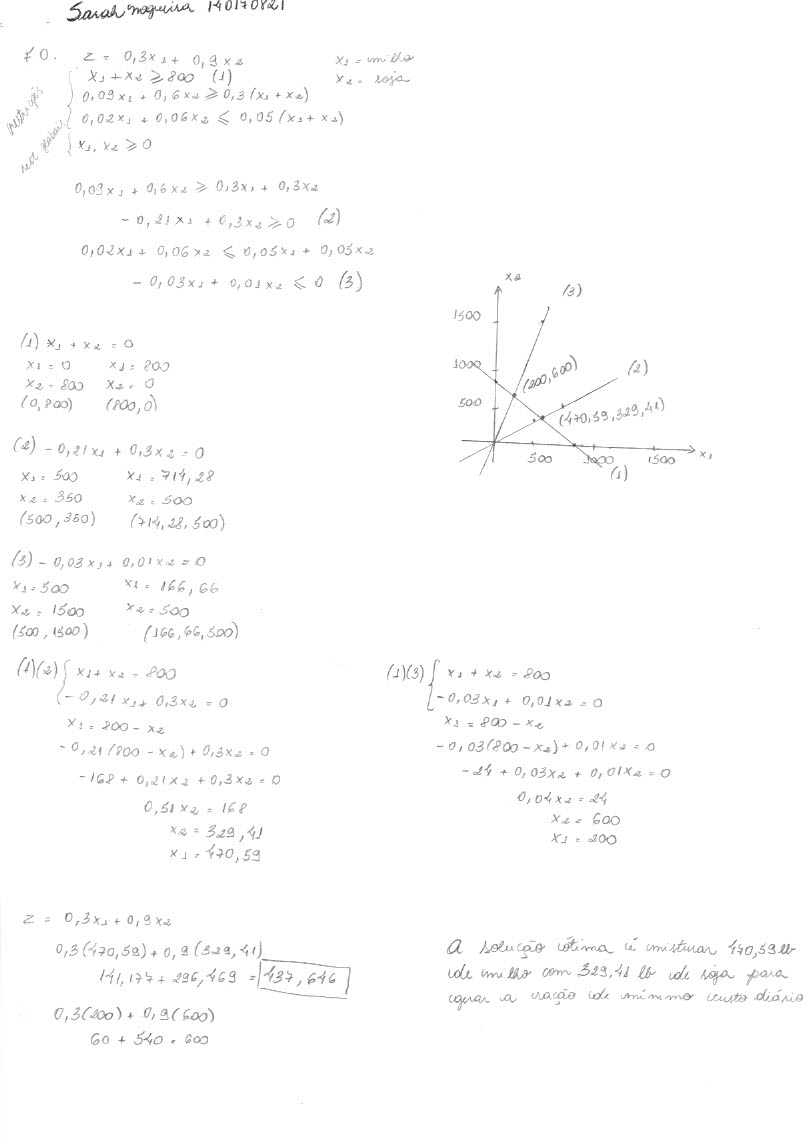 Sarah Nogueira 140170821
F.O. Z = 0,3x₁ + 0,9x₂
x₁ = milho
x₂ = soja
restrições
x₁ + x₂ ≥ 800 (1)
0,09x₁ + 0,6x₂ ≥ 0,3(x₁ + x₂)
0,02x₁ + 0,06x₂ ≤ 0,05(x₁ + x₂)
x₁, x₂ ≥ 0
0,09x₁ + 0,6x₂ ≥ 0,3x₁ + 0,3x₂
- 0,21x₁ + 0,3x₂ ≥ 0 (2)
0,02x₁ + 0,06x₂ ≤ 0,05x₁ + 0,05x₂
- 0,03x₁ + 0,01x₂ ≤ 0 (3)
x₂
(3)
1500
1000
(200,600)
(2)
500
(470,59,329,41)
500 1000 1500 x₁
(1)
(1) x₁ + x₂ = 0
x₁ = 0 x₁ = 800
x₂ = 800 x₂ = 0
(0,800) (800,0)
(2) - 0,21x₁ + 0,3x₂ = 0
x₁ = 500 x₁ = 714,28
x₂ = 350 x₂ = 500
(500,350) (714,28,500)
(3) - 0,03x₁ + 0,01x₂ = 0
x₁ = 500 x₁ = 166,66
x₂ = 1500 x₂ = 500
(500,1500) (166,66,500)
(1)(2) x₁ + x₂ = 800
- 0,21x₁ + 0,3x₂ = 0
x₁ = 800 - x₂
- 0,21(800 - x₂) + 0,3x₂ = 0
- 168 + 0,21x₂ + 0,3x₂ = 0
0,51x₂ = 168
x₂ = 329,41
x₁ = 470,59
(1)(3) x₁ + x₂ = 800
- 0,03x₁ + 0,01x₂ = 0
x₁ = 800 - x₂
- 0,03(800 - x₂) + 0,01x₂ = 0
- 24 + 0,03x₂ + 0,01x₂ = 0
0,04x₂ = 24
x₂ = 600
x₁ = 200
Z = 0,3x₁ + 0,9x₂
0,3(470,59) + 0,9(329,41)
141,177 + 296,469 = 437,646
0,3(200) + 0,9(600)
60 + 540 = 600
A solução ótima é misturar 470,59 lb
de milho com 329,41 lb de soja para
gerar a ração de mínimo custo diário